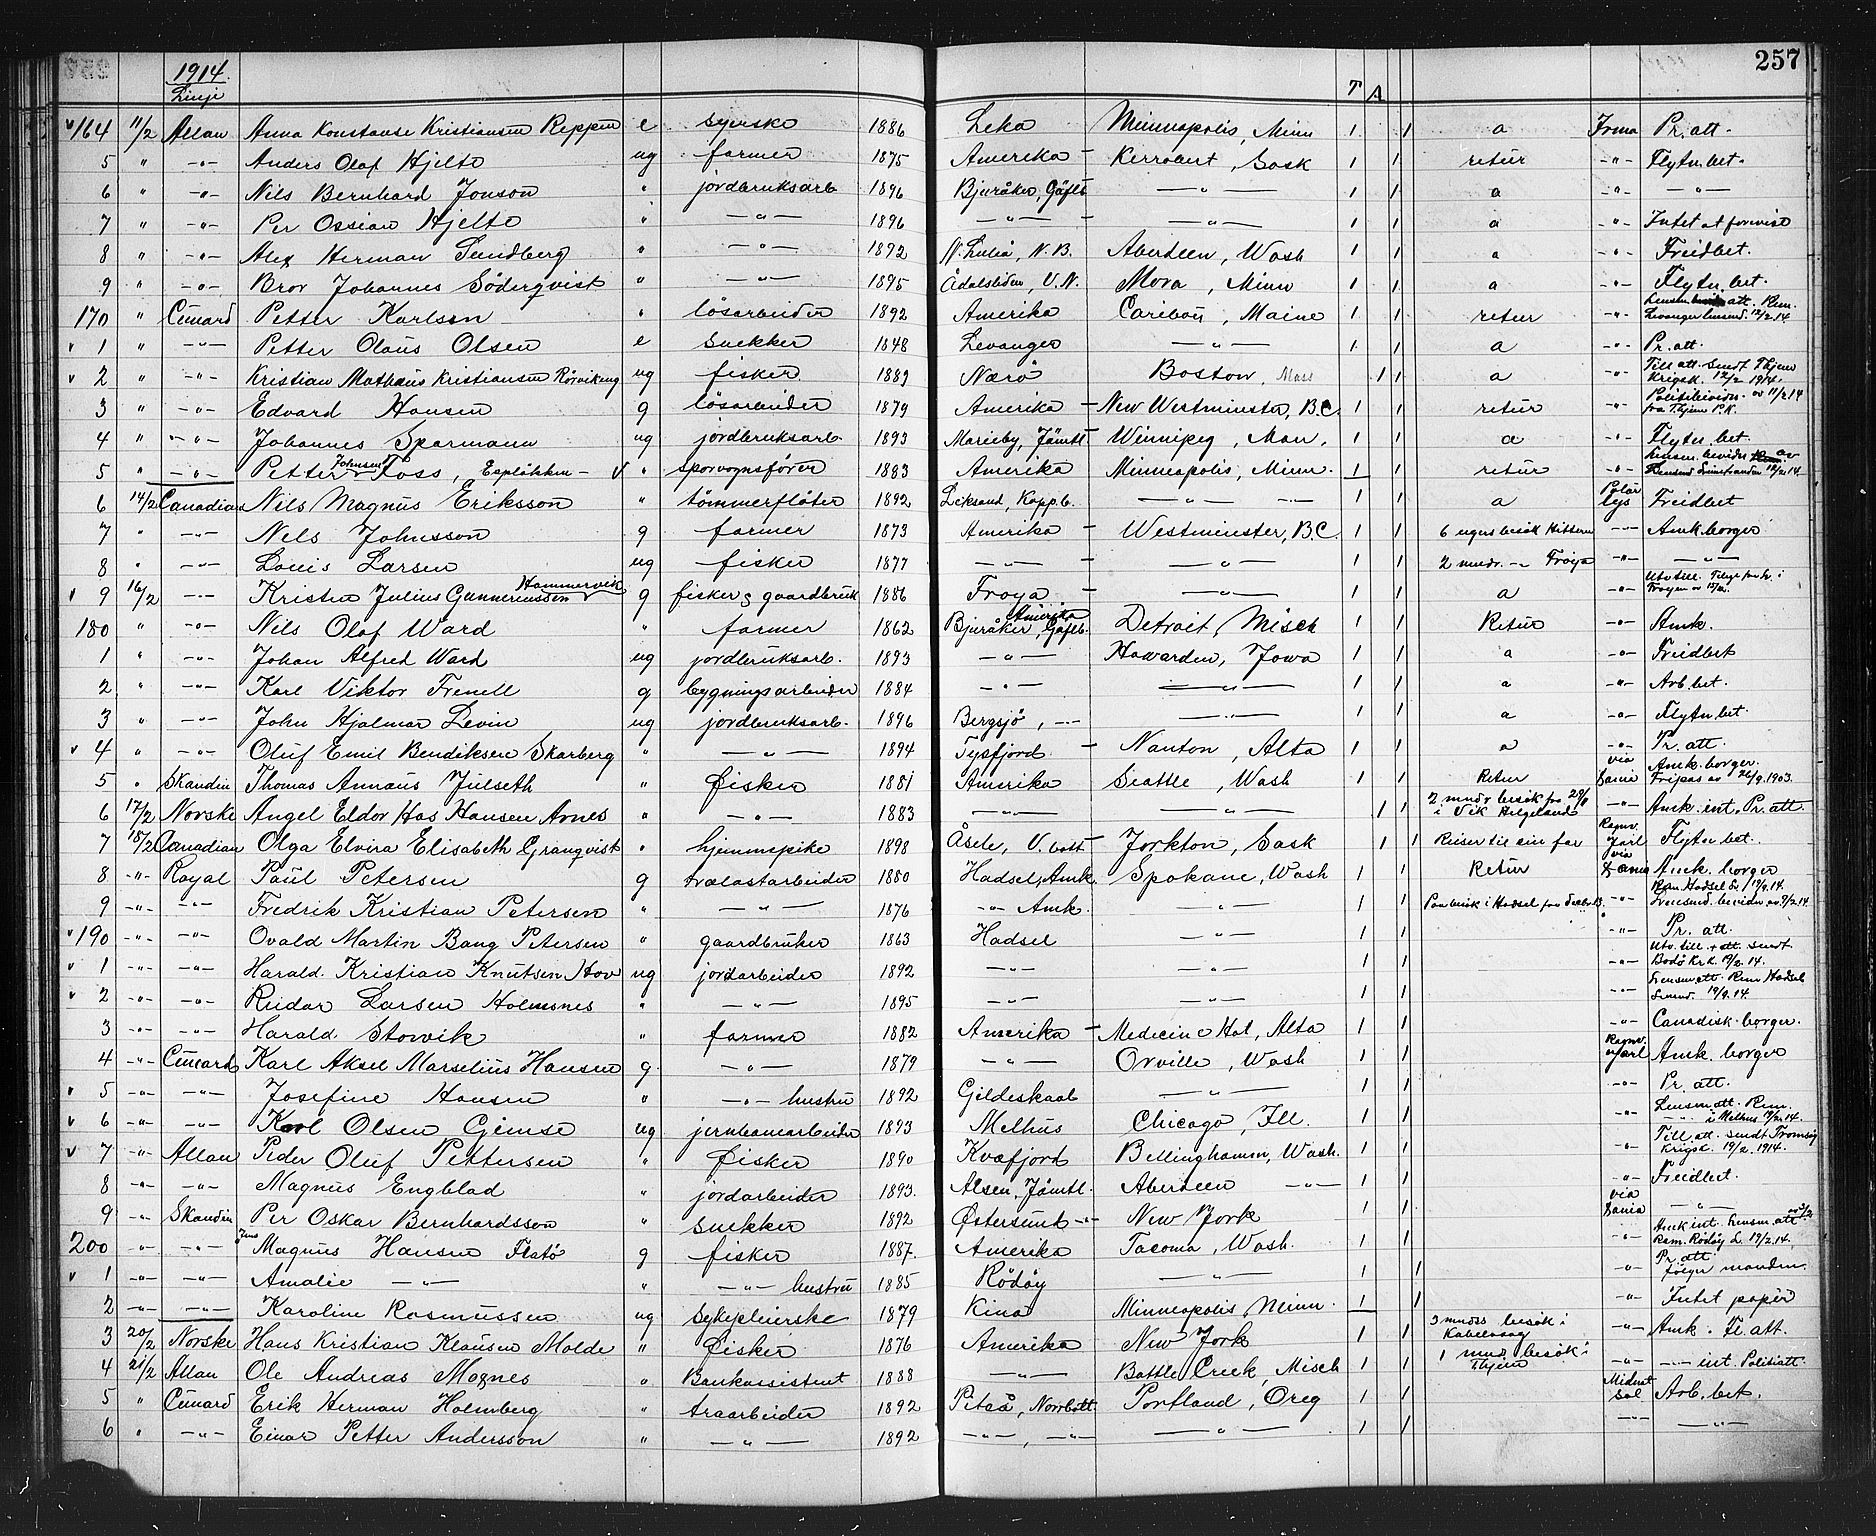 257
1914.
Linje T A
v 164 11/2 Allan Anna Konstanse Kristiansen Reppen e syerske 1886 Leka Minneapolis, Minn 1 1 a Irma Pr. att.
5 " -"- Anders Olof Hjelte ug farmer 1875 Amerika - Kerrobert, Sask 1 1 retur -"- Flytn. bet.
6 " -"- Nils Bernhard Jonson " jordbruksarb 1896 Bjuråker, Gäflb -"- 1 1 a -"- -"-
7 " -"- Per Ossian Hjelte " -"- 1896 -"- -"- 1 1 a -"- Intet at forevise
8 " -"- Alex Herman Lundberg " -"- 1892 N. Luleå, N.B. Aberdeen, Wash 1 1 a -"- Freidbet.
9 " -"- Bror Johannes Söderqvist " -"- 1895 Ådalsliden, V.N. Mora, Minn 1 1 a -"- Flytn. bet.
170 " Cunard Petter Karlsen " løsarbeider 1892 Amerika Caribou, Maine 1 1 retur -"- Lensm. att. Rem. Levanger lensmd. 12/2.14
v 1 " -"- Petter Olaus Olsen e snekker 1848 Levanger -"- 1 1 a -"- Pr. att.
v 2 " -"- Kristian Mathæus Kristiansen Rörvikeng ug fisker 1889 Nærö Boston, Mass 1 1 a -"- Till. att. sendt Thjem Krigsk. 12/2 1914.
3 " -"- Edvard Hansen g løsarbeider 1879 Amerika - New Westminster, B.C. 1 1 retur -"- Politibevidn. av 11/2 14 fra Thjem P.K.
4 " -"- Johannes Sparmann ug jordbruksarb. 1893 Marieby, Jämtl - Winnipeg, Man. 1 1 a -"- Flytn. bet.
5 " -"- Petter Johnsen Foss, - v " sporvognsfører 1883 Amerika Minneapolis, Minn. 1 1 retur -"- Lensm. bevidn. av 12/2 14.
6 14/2 Canadian Nils Magnus Eriksson " tømmerfløter 1892 Leksand, Kopp.b. -"- 1 1 a Polarlys Freidbet
7 " -"- Nels Johnsson g farmer 1873 Amerika - Westminster, B.C. 1 1 6 ugers besøk Hitteren -"- Amk. borger
8 " -"- Louis Larsen ug fisker 1877 -"- -"- 1 1 2 mndr. -"- Frøya -"- -"-
v 9 16/2 -"- Kristen Julius Gunneriussen Hammervik g fisker & gaardbruk 1886 Frøya -"- 1 1 a -"- Utv. till.
180 " -"- Nils Olof Ward " farmer 1862 Bjuråker, Gäflb. Amerika Detroit, Misch 1 1 Retur -"- Amk.
1 " -"- Johan Alfred Ward ug jordbruksarb. 1893 -"- Hawarden, Iowa 1 1 a -"- Freidbet
2 " -"- Karl Viktor Frenell g bygningsarbeider 1884 -"- -"- 1 1 a -"- Arb. bet.
3 " -"- John Hjalmar Levin ug jordbruksarb. 1896 Bergsjö, -"- -"- 1 1 a -"- Flytn. bet.
v 4 " -"- Oluf Emil Bendiksen Skarberg " -"- 1894 Tysfjord - Nanton, Alta 1 1 a -"- Pr. att.
5 " Skandin Thomas Annæus Julseth " Fisker 1881 Amerika Seattle, Wash 1 1 Retur via Dania Amk. borger. Fripas av 26/9.1903.
6 17/2 Norske Angel Eldor Has Hansen Arnes " -"- 1883 -"- -"- 1 1 2 mndr besøk fra 29/1 i Vik Helgeland -"- Amk. int. Pr. att.
7 18/2 Canadian Olga Elvira Elisabeth Granqvist " hjemmepike 1898 Åsele, V. bott. Yorkton, Sask 1 1 Reiser til sin far Ragnv. Jarl Flytn. bet.
8 -"- Royal Paul Petersen g trælastarbeider 1880 Hadsel, Amk. Spokane, Wash 1 1 Retur via Dania Amk. borger
9 -"- -"- Fredrik Kristian Petersen " -"- 1876 -"- Amk. -"- 1 1 Paa besøk i Hadsel fra -"- Rem. Hadsel L. 19/2.14. Lensmd. bevidn. av 7/2.14
v 190 -"- -"- Ovald Martin Bang Petersen " gaardbruker 1863 Hadsel -"- 1 1 -"- Pr. att.
v 1 -"- -"- Harald Kristian Knutsen Hov ug jordarbeider 1892 -"- -"- 1 1 -"- Utv. till. + att. sendt Bodø Kr.k. 19/2.14.
v 2 -"- -"- Reidar Larsen Holmsnes " -"- 1895 -"- -"- 1 1 -"- Lensm. att. Rem Hadsel Lensmd. 19/2.14.
3 -"- -"- Harald Storvik " farmer 1882 Amerika - Medicine Hat, Alta 1 1 -"- Canadisk borger.
4 -"- Cunard Karl Aksel Marselius Hansen g -"- 1879 -"- Orville, Wash 1 1 Ragnv. Jarl Amk. borger
v 5 -"- -"- Josefine Hansen " -"- hustru 1892 Gildeskaal -"- 1 1 -"- Pr. att.
v 6 -"- -"- Karl Olsen Gimse ug jernbanearbeider 1893 Melhus Chicago, Ill. 1 1 -"- Lensm. att. Rem. i Melhus 19/2.14.
v 7 -"- Allan Peder Oluf Pettersen " Fisker 1890 Kvæfjord Bellinghamm, Wash. 1 1 -"- Till. att. sendt Tromsø Krigsk. 19/2.1914.
8 -"- -"- Magnus Engblad " jordarbeider 1893. Alsen, Jämtl. Aberdeen -"- 1 1 -"- Freidbet.
9 -"- Skandin Per Oskar Bernhardsson " snekker 1892 Østersund -"- New York 1 1 via Dania -"-
200 -"- -"- Jens Magnus Hansen Flatø g fisker 1887. Amerika Tacoma, Wash. 1 1 -"- Amk int. Lensm. att. Rem. Rødøy L. 19/2.14.
v 1 -"- -"- Amalie -"- " -"- hustru 1885 Rödöy -"- 1 1 -"- Pr. att. følger manden
2 -"- -"- Karoline Rasmussen ug sykepleierske 1879 Kina Minneapolis Minn. 1 1 -"- Intet papir
3 20/2 Norske Hans Kristian Klausen Molde " Fisker 1876 Amerika New York 1 1 3 mndrs besøk i Kabelvaag -"- Amk. Fl. att.
4 21/2 Allan Ole Andreas Mognes " Bankassistent 1888 -"- Battle Creek, Misch 1 1 1 mnd. besøk i Thjem -"- -"- int. Politiatt.
5 " Cunard Erik Herman Holmberg " træarbeider 1892 Piteå, Norrbott. Portland, Oreg 1 1 Midnatsol Arb. bet.
6 " -"- Einar Petter Andersson " -"- 1892 -"-, -"- -"- 1 1 -"- -"-